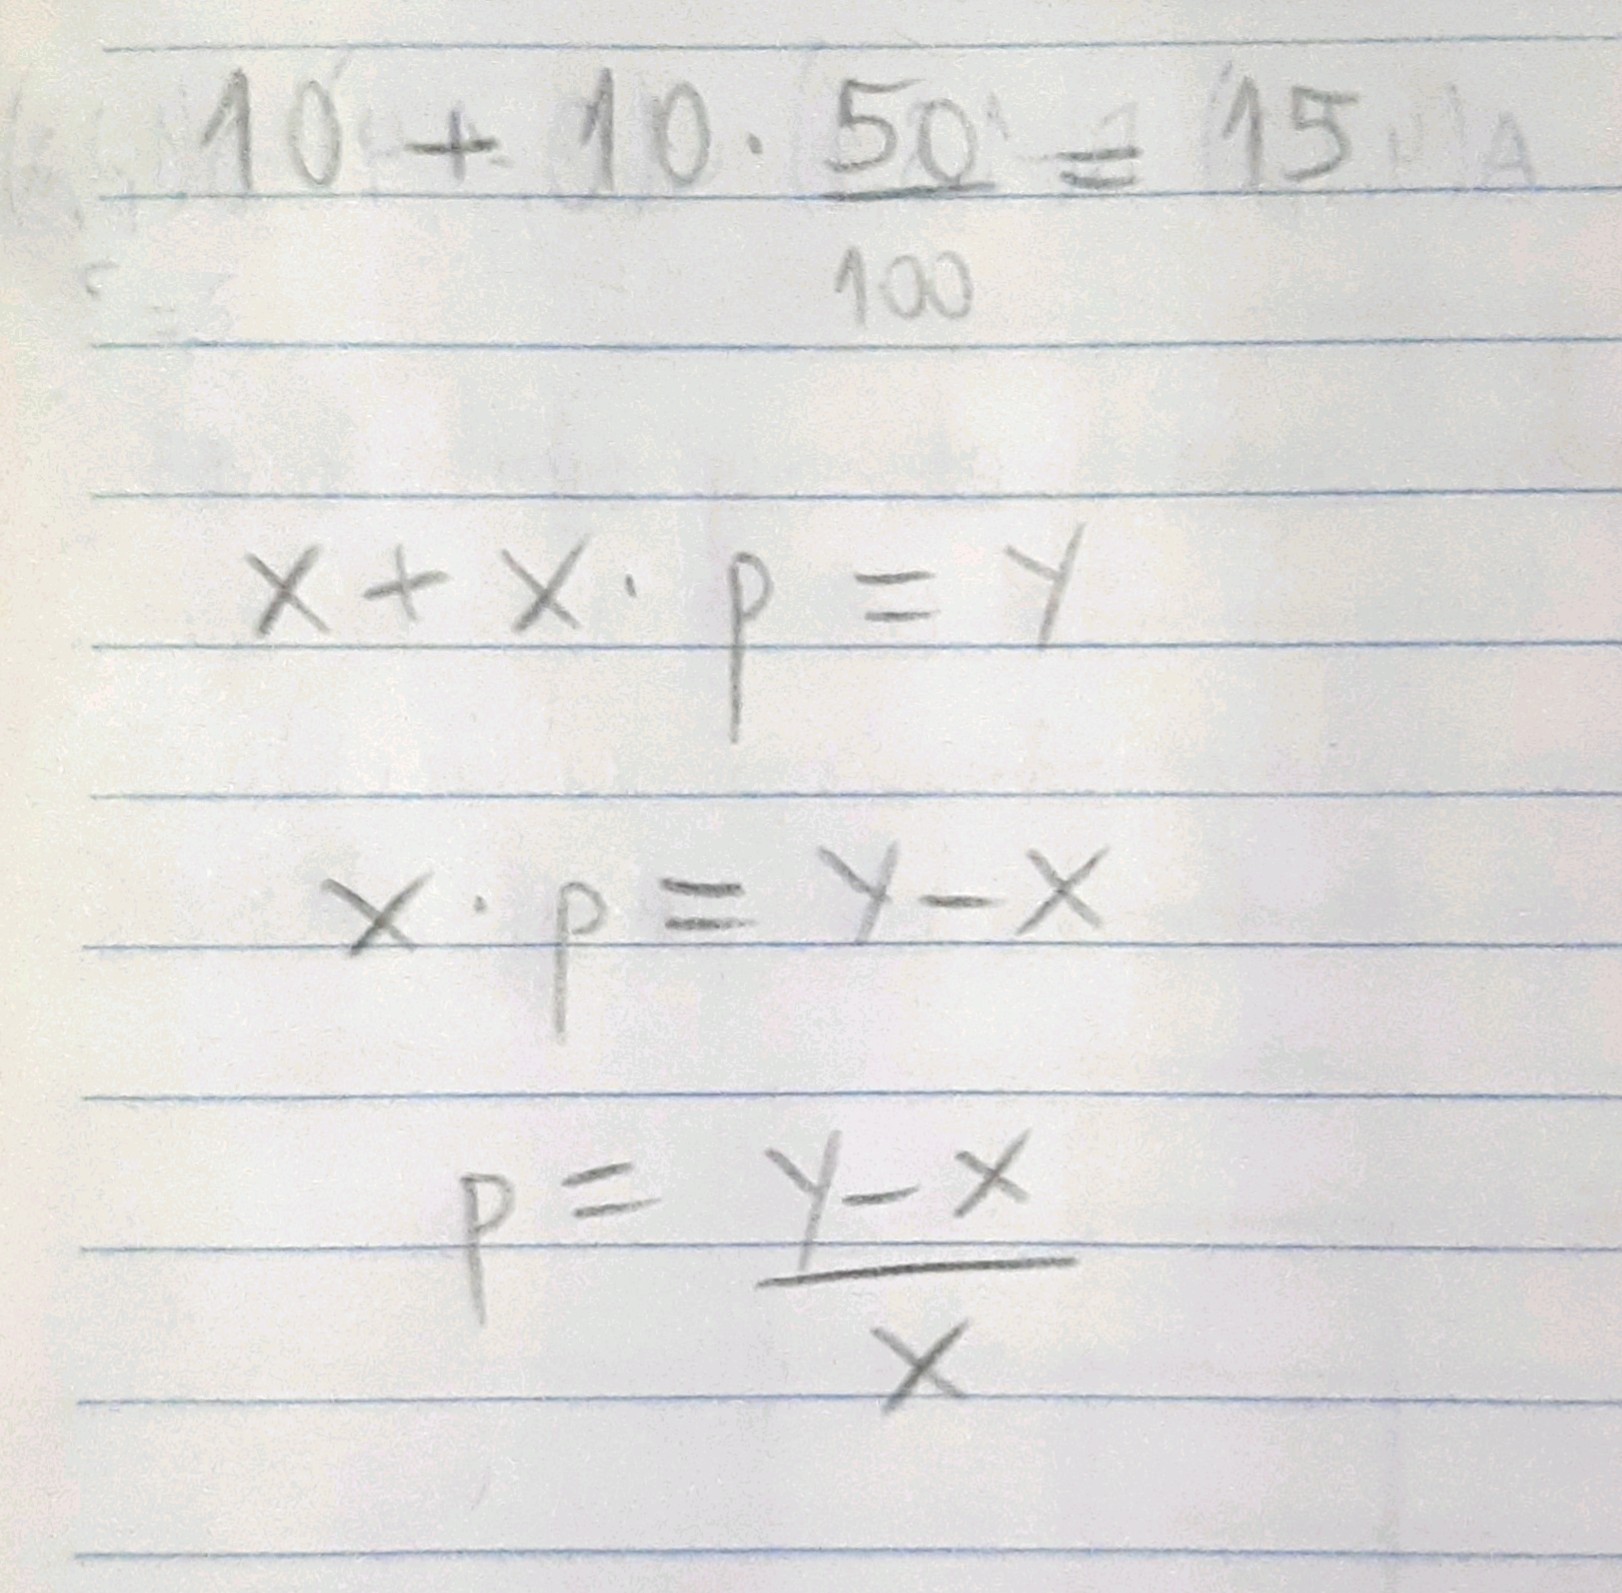 10 + 10 · 50/100 = 15
x + x · p = y
x · p = y - x
p = y - x / x